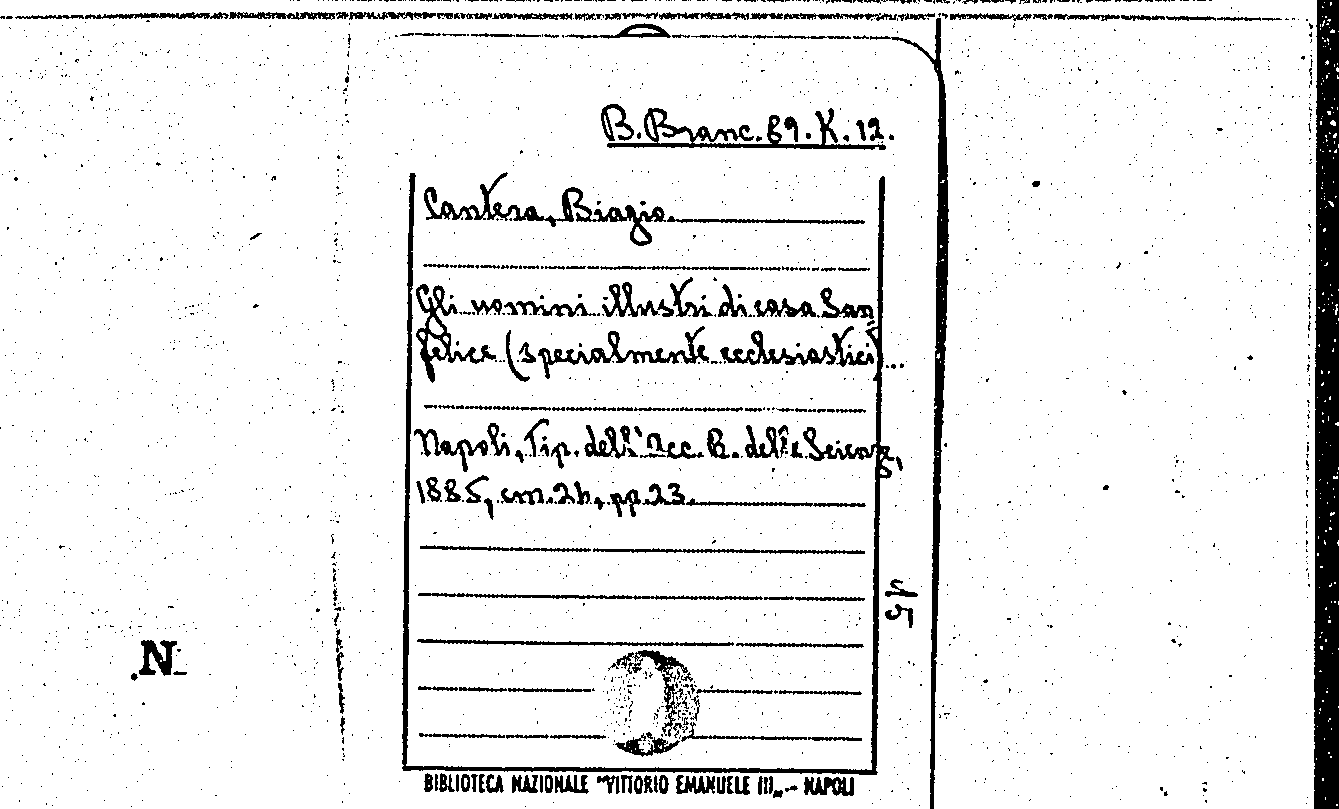 B. Branc. 89. K. 12.
Cantera, Biagio.
Gli uomini illustri di casa San=
felice (specialmente ecclesiastici)...
Napoli, Tip. dell'Acc. R. delle Scienze,
1885, cm. 26, pp. 23.
15
N
BIBLIOTECA NAZIONALE "VITTORIO EMANUELE III„ - NAPOLI